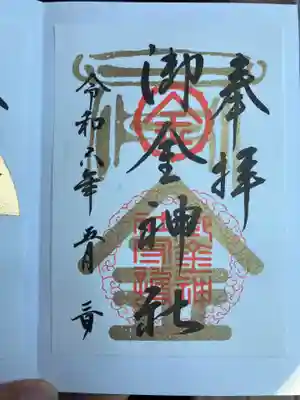 奉拝
御金神社
令和六年 五月 三日
金
御金神社御璽